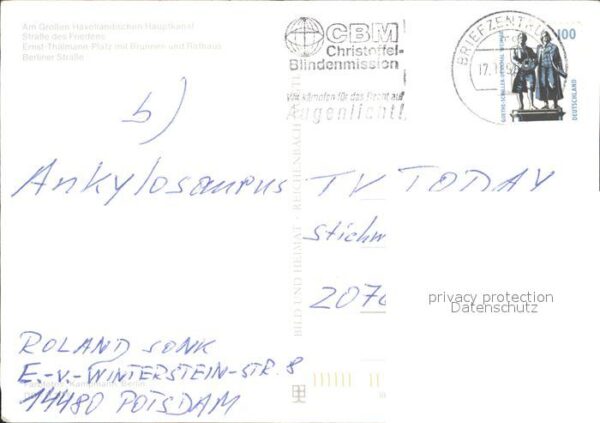 Am Großen Havelländischen Hauptkanal
Straße des Friedens
Ernst-Thälmann-Platz mit Brunnen und Rathaus
Berliner Straße
CBM
Christoffel-
Blindenmission
Wir kämpfen für das Recht auf
Augenlicht!
BRIEFZENTR
17.
100
GOETHE-SCHILLER-DENKMAL
DEUTSCHLAND
b)
Ankylosaurus
TV TODAY
Stichw
207
BILD UND HEIMAT · REICHENBACH
privacy protection
Datenschutz
ROLAND SONK
E.-v.-WINTERSTEIN-STR. 8
14480 POTSDAM
Berlin